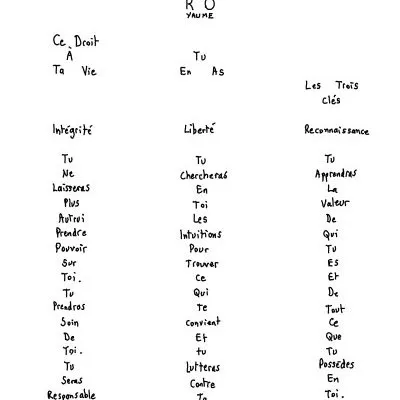 R O
YAUME
Ce Droit
À
Ta Vie
Tu
En As
Les Trois
Clés
Intégrité
Tu
Ne
Laisseras
Plus
Autrui
Prendre
Pouvoir
Sur
Toi.
Tu
Prendras
Soin
De
Toi.
Tu
Seras
Responsable
Liberté
Tu
Chercheras
En
Toi
Les
Intuitions
Pour
Trouver
Ce
Qui
Te
Convient
Et
tu
Lutteras
Contre
Reconnaissance
Tu
Apprendras
La
Valeur
De
Qui
Tu
Es
Et
De
Tout
Ce
Que
Tu
Possèdes
En
Toi.